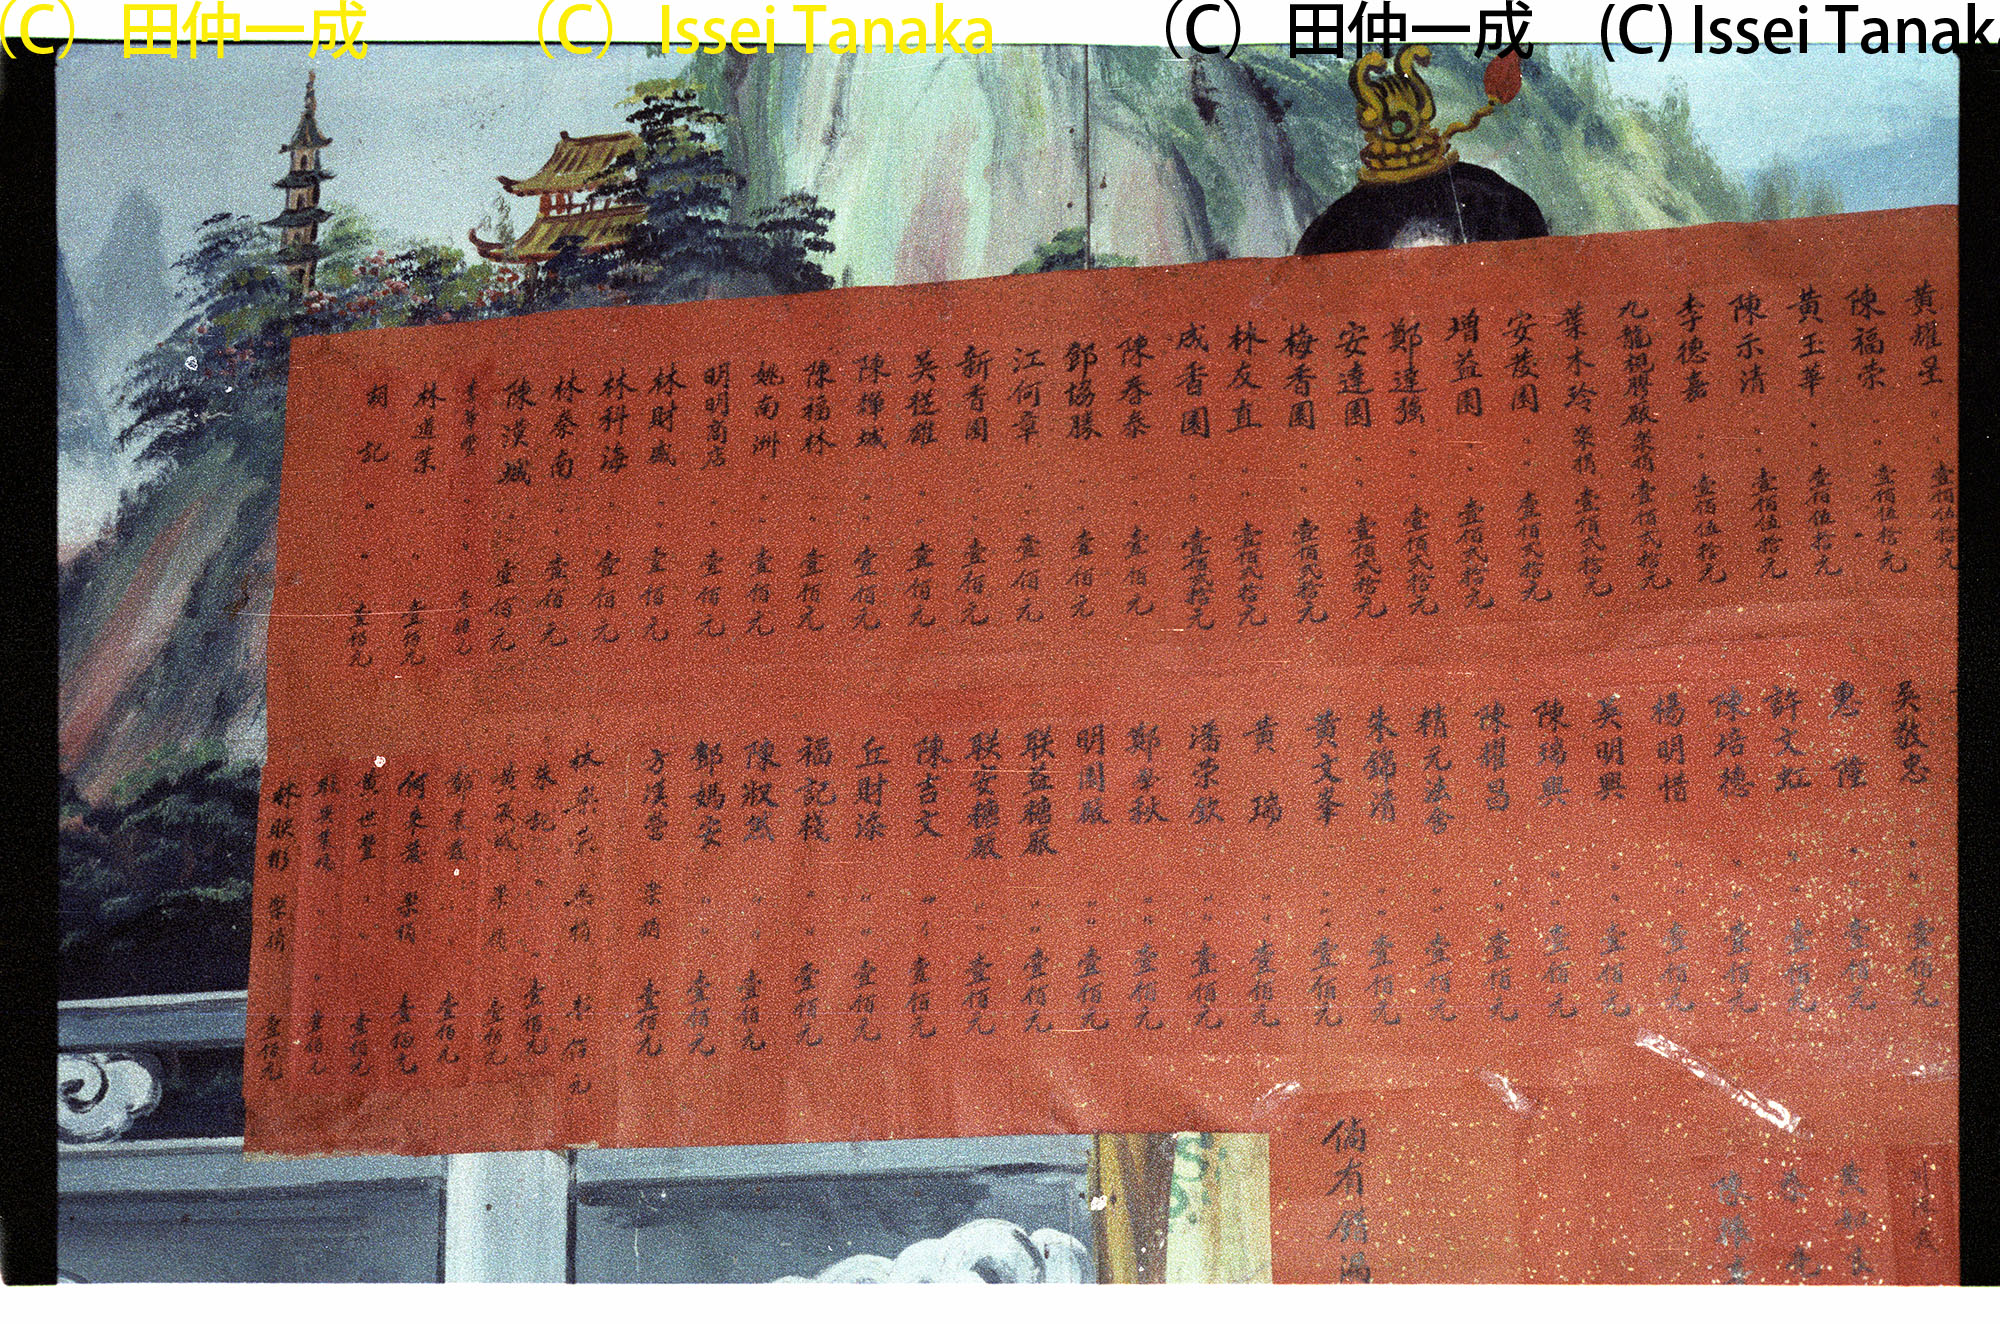 (C) 田仲一成 (C) Issei Tanaka (C) 田仲一成 (C) Issei Tanaka
黃耀星 〃 〃 壹佰伍拾元
陳福榮 〃 〃 壹佰伍拾元
黃玉華 〃 〃 壹佰伍拾元
陳示清 〃 〃 壹佰伍拾元
李德嘉 〃 〃 壹佰伍拾元
九龍 廠 樂捐 壹佰弍拾元
葉木玲 樂捐 壹佰弍拾元
安茂園 〃 〃 壹佰弍拾元
增益園 〃 〃 壹佰弍拾元
鄭達強 〃 〃 壹佰弍拾元
安達園 〃 〃 壹佰弍拾元
梅香園 〃 〃 壹佰弍拾元
林友直 〃 〃 壹佰弍拾元
成香園 〃 〃 壹佰弍拾元
陳春泰 〃 〃 壹佰元
鄧協勝 〃 〃 壹佰元
江何章 〃 〃 壹佰元
新香園 〃 〃 壹佰元
吳從雄 〃 〃 壹佰元
陳燁城 〃 〃 壹佰元
陳福林 〃 〃 壹佰元
姚南洲 〃 〃 壹佰元
明明商店 〃 〃 壹佰元
林財盛 〃 〃 壹佰元
林科海 〃 〃 壹佰元
林泰南 〃 〃 壹佰元
陳漢城 〃 〃 壹佰元
〃 〃 壹佰元
林道榮 〃 〃 壹佰元
胡記 〃 〃 壹佰元
吳敬忠 〃 〃 壹佰元
惠隆 〃 〃 壹佰元
許文虹 〃 〃 壹佰元
陳培德 〃 〃 壹佰元
楊明惜 〃 〃 壹佰元
吳明興 〃 〃 壹佰元
陳瑞興 〃 〃 壹佰元
陳耀昌 〃 〃 壹佰元
精元法舍 〃 〃 壹佰元
朱錦清 〃 〃 壹佰元
黃文峯 〃 〃 壹佰元
黃瑞 〃 〃 壹佰元
潘榮欽 〃 〃 壹佰元
鄭筆秋 〃 〃 壹佰元
明園廠 〃 〃 壹佰元
联益糖廠 〃 〃 壹佰元
联安糖廠 〃 〃 壹佰元
陳吉文 〃 〃 壹佰元
丘財添 〃 〃 壹佰元
福記棧 〃 〃 壹佰元
陳淑然 〃 〃 壹佰元
鄭媽安 〃 〃 壹佰元
方漢營 樂捐 壹佰元
林 榮 捐 佰元
朱記 〃 〃 壹佰元
黃 城 樂捐 壹佰元
鄭 〃 壹佰元
何 發 樂捐 壹佰元
黃世豐 〃 〃 壹佰元
〃 〃 壹佰元
林 彬 樂捐 壹佰元
倘有錯漏